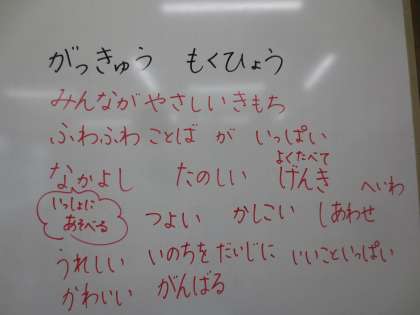 がっきゅう もくひょう
みんながやさしいきもち
ふわふわことば が いっぱい
よくたべて
なかよし たのしい げんき
へいわ
いっしょに
あそべる
つよい かしこい しあわせ
うれしい いのちをだいじに いいこといっぱい
かわいい がんばる